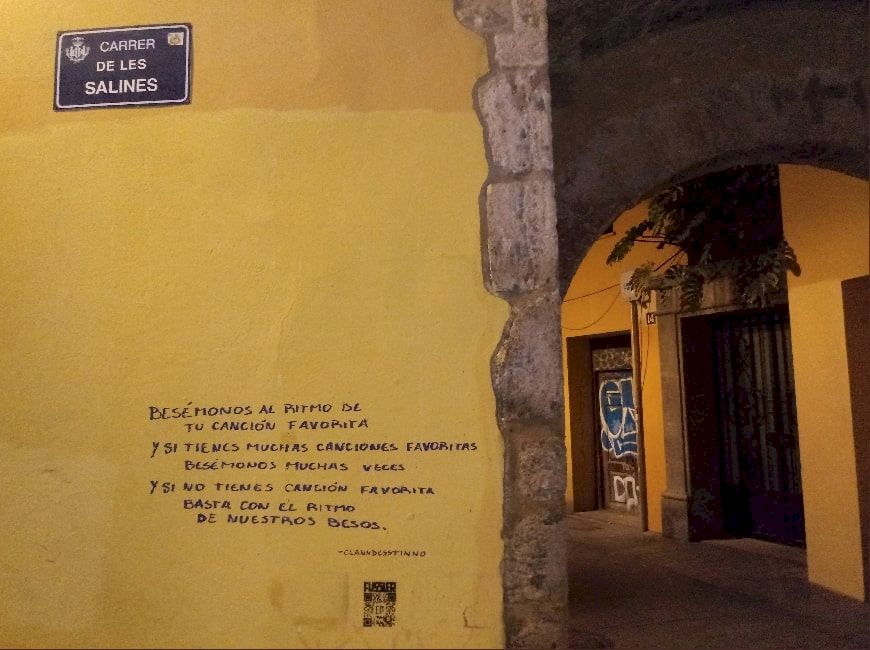 CARRER
DE LES
SALINES
BESÉMONOS AL RITMO DE
TU CANCIÓN FAVORITA
Y SI TIENES MUCHAS CANCIONES FAVORITAS
BESÉMONOS MUCHAS VECES
Y SI NO TIENES CANCIÓN FAVORITA
BASTA CON EL RITMO
DE NUESTROS BESOS.
FUSSLER
14